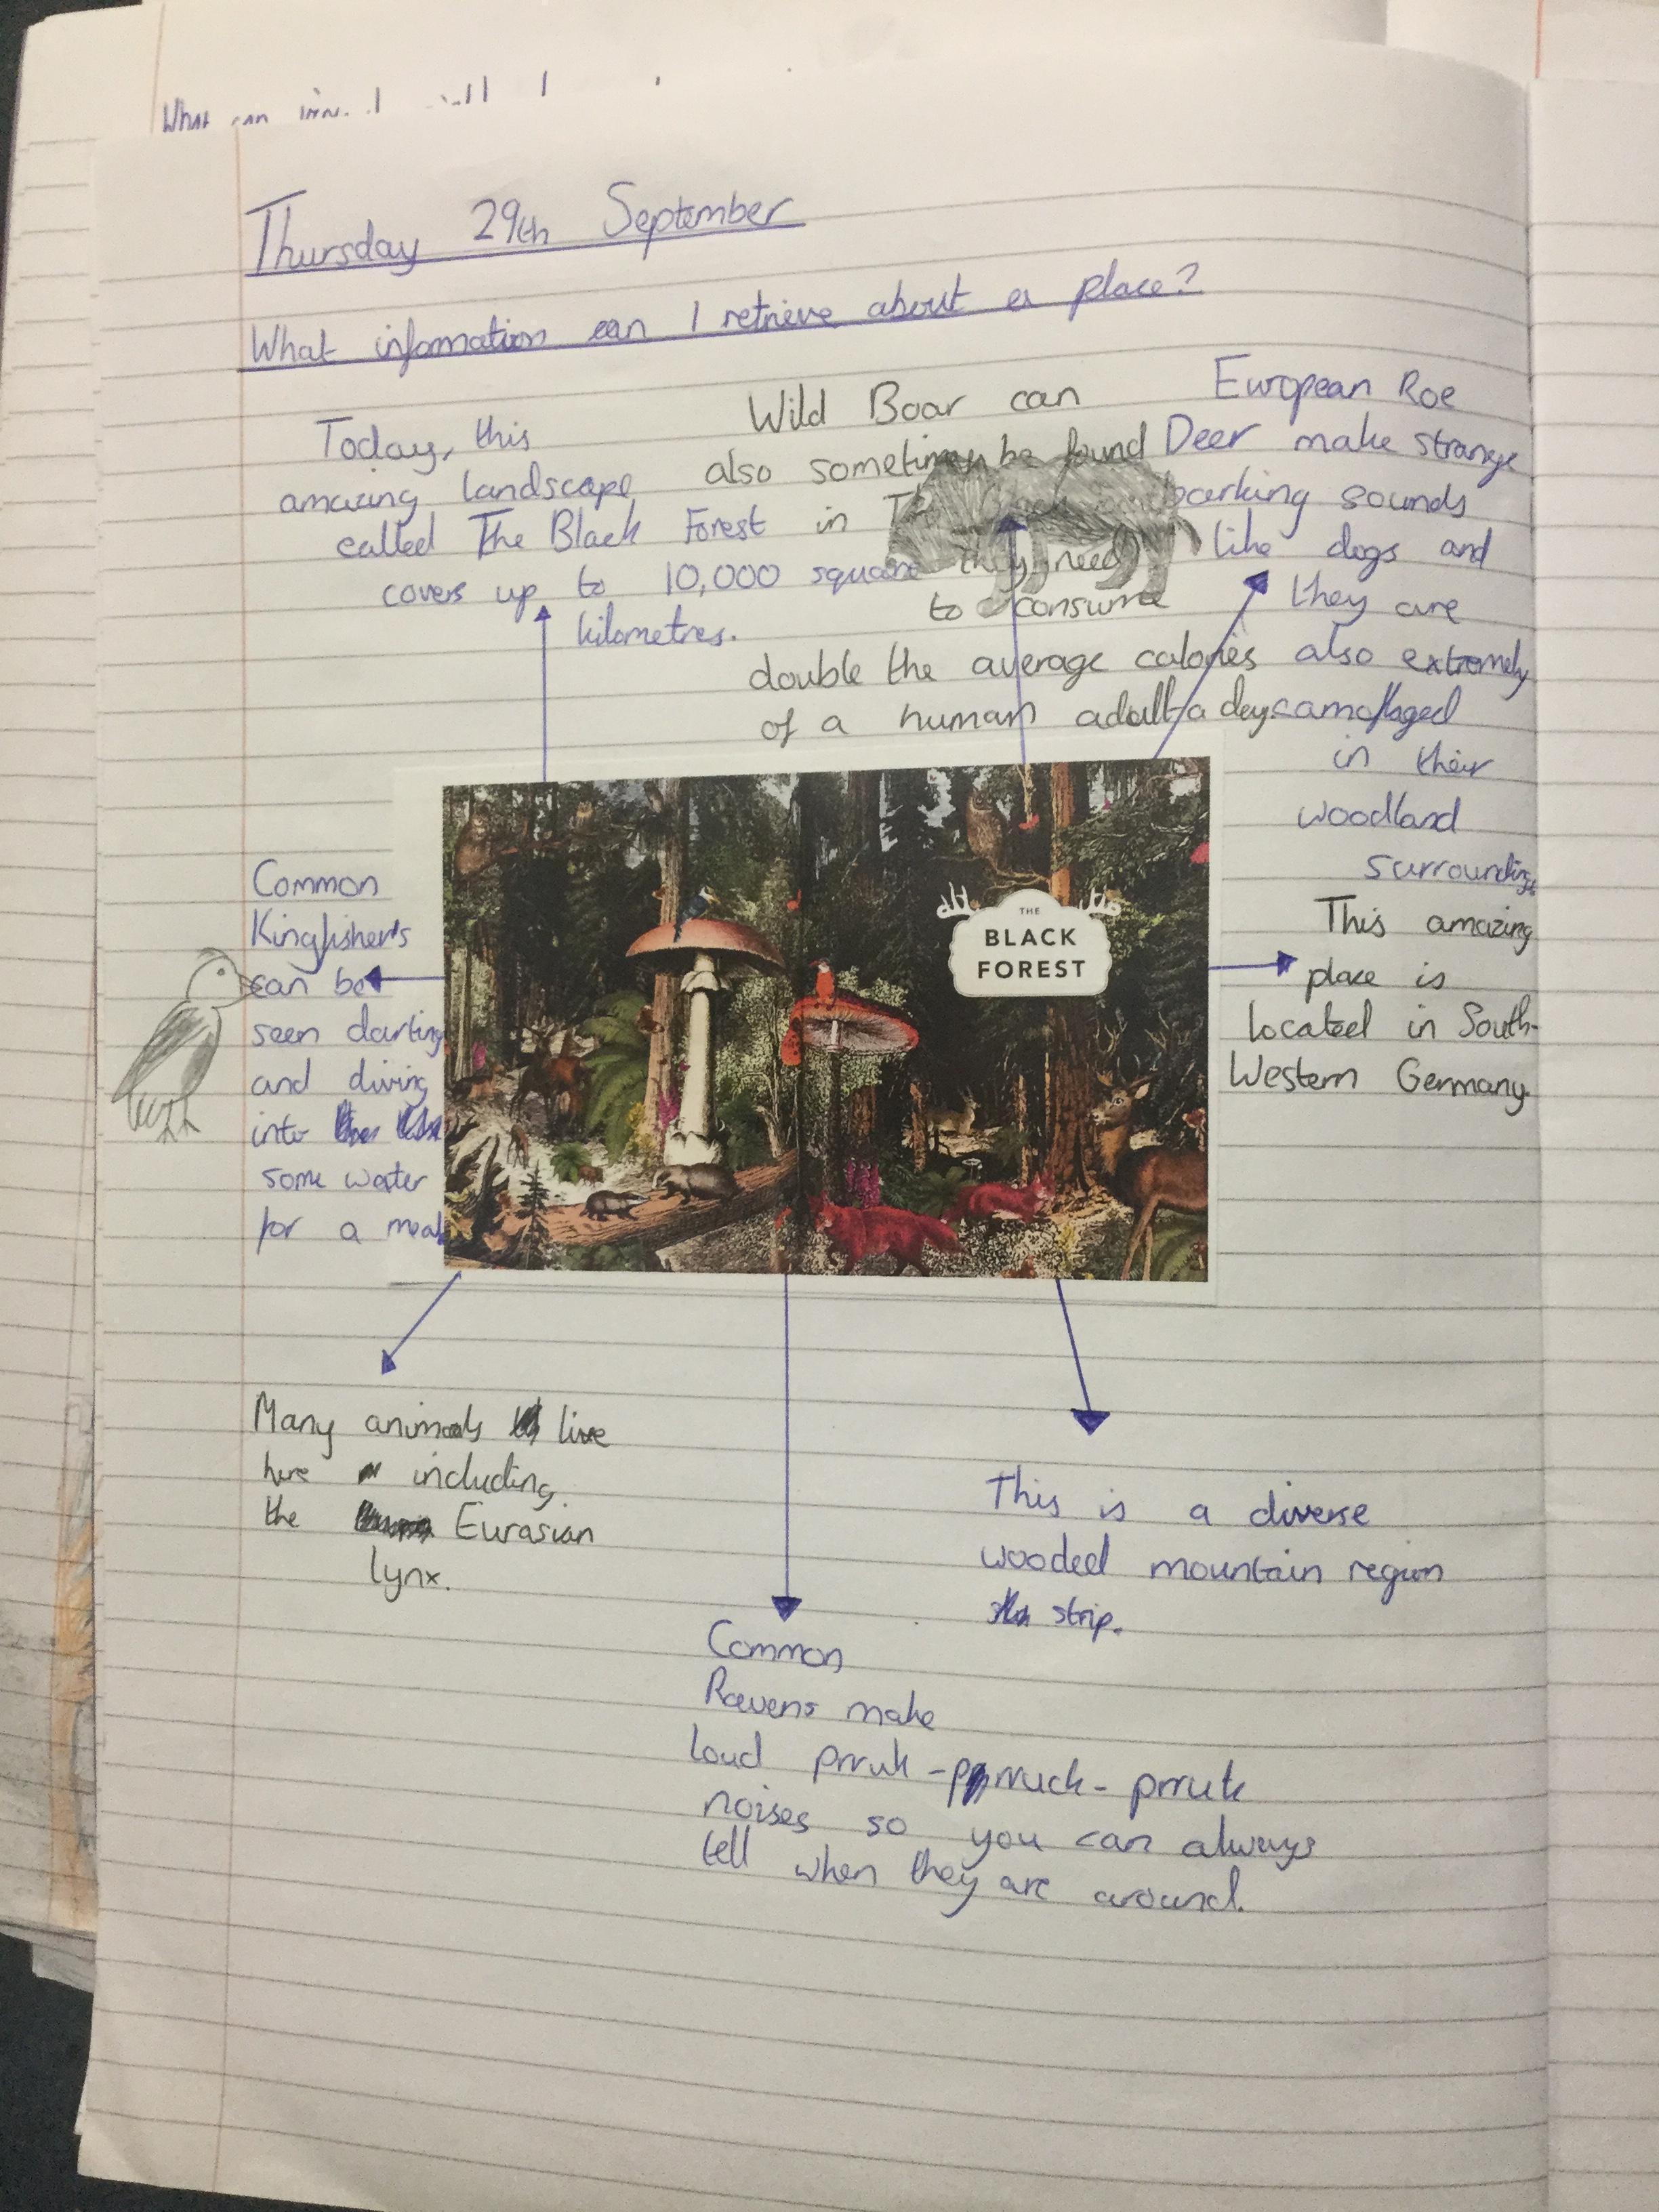 What can
Thursday 29th September
What information can I retrieve about a place?
Today, this
amazing landscape
called The Black Forest
covers up to 10,000 square
kilometres.
Wild Boar can
also sometimes be found
in
they need
to consume
double the average calories
of a human adult a day.
European Roe
Deer make strange
barking sounds
like dogs and
they are
also extremely
camoflaged
in their
woodland
surroundings
Common
Kingfisher's
can be
seen darting
and diving
into
some water
for a meal
THE
BLACK
FOREST
This amazing
place is
located in South-
Western Germany.
Many animals live
here including
the Eurasian
lynx.
This is a diverse
wooded mountain region
strip.
Common
Ravens make
loud prruk-prruck-prruk
noises so you can always
tell when they are around.